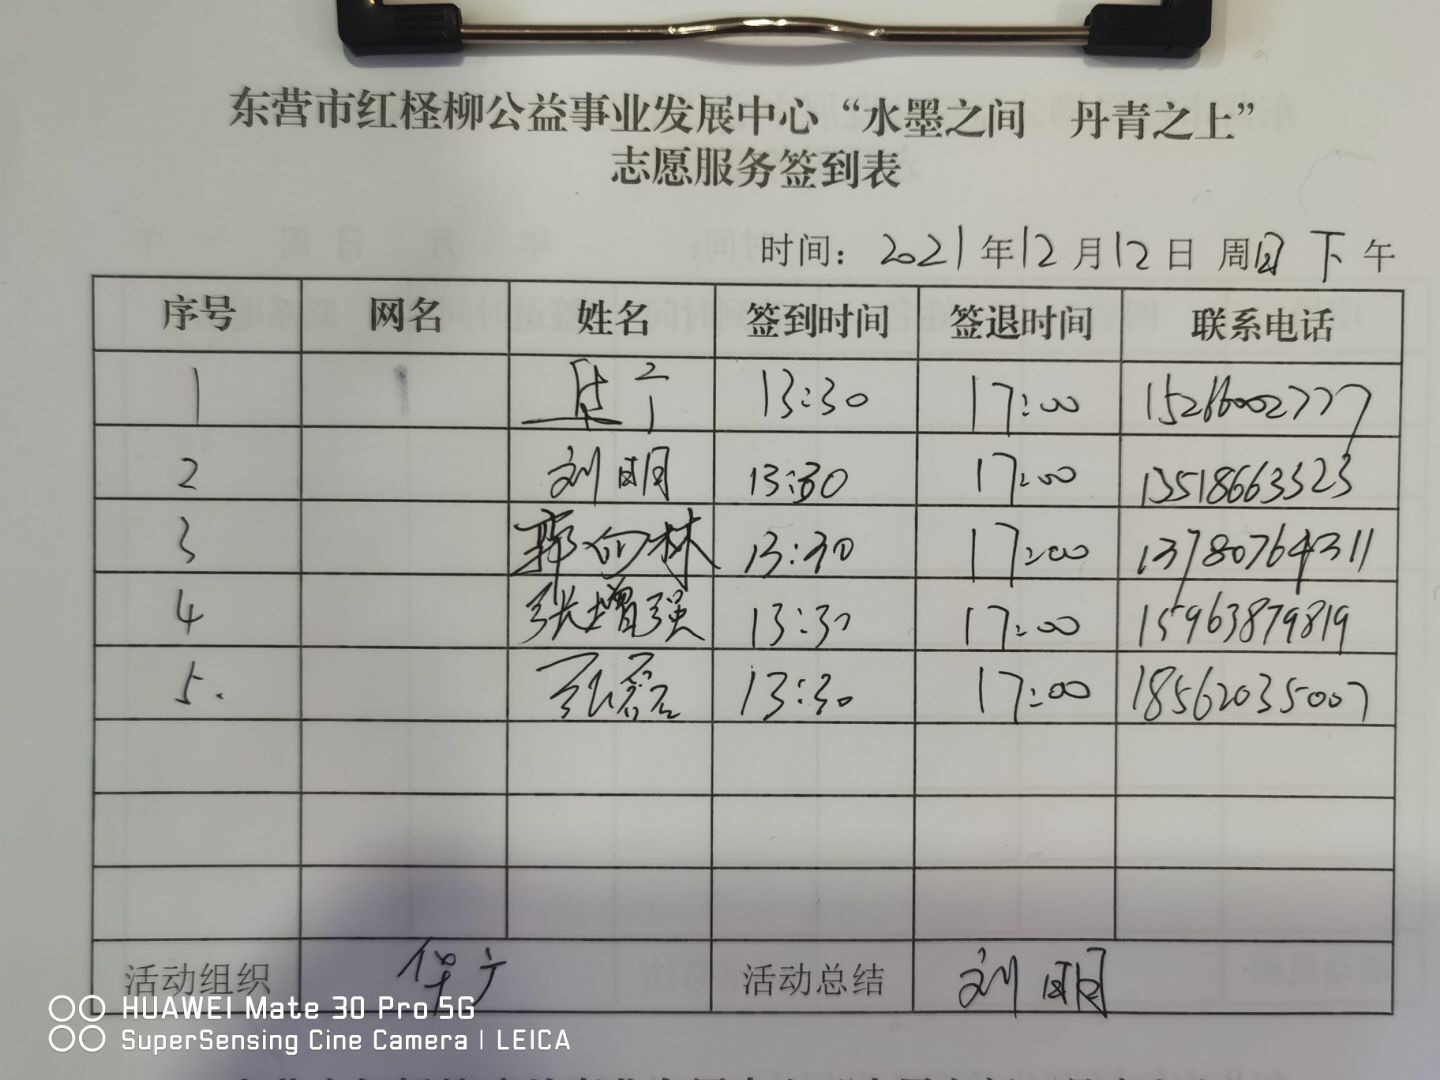 东营市红柽柳公益事业发展中心“水墨之间 丹青之上”
志愿服务签到表
时间：2021年12月12日 周日 下午
序号 网名 姓名 签到时间 签退时间 联系电话
1 13:30 17:00 15266002777
2 刘明 13:30 17:00 13518663323
3 郭向林 13:30 17:00 13780764311
4 张增强 13:30 17:00 15963879819
5. 张磊 13:30 17:00 18562035007
活动组织 活动总结 刘明
HUAWEI Mate 30 Pro 5G
SuperSensing Cine Camera | LEICA